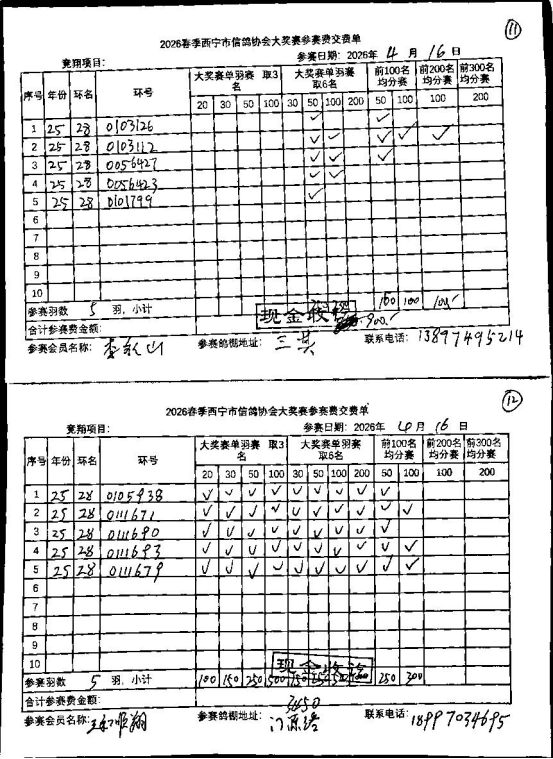 ⑪
2026春季西宁市信鸽协会大奖赛参赛费交费单
竞翔项目： 参赛日期：2026年 4 月 16 日
序号 年份 环名 环号 大奖赛单羽赛 取3名 大奖赛单羽赛 取6名 前100名均分赛 前200名均分赛 前300名均分赛
20 30 50 100 30 50 100 200 50 100 100 200
1 25 28 0103126 ✓ ✓
2 25 28 0103112 ✓ ✓ ✓ ✓ ✓
3 25 28 0056427 ✓ ✓ ✓
4 25 28 0056423 ✓ ✓
5 25 28 0101799 ✓
6
7
8
9
10
参赛羽数 5 羽，小计 100 100
现金收讫
合计参赛费金额： 900
参赛会员名称： 参赛鸽棚地址： 三其 联系电话：13897495214
⑫
2026春季西宁市信鸽协会大奖赛参赛费交费单
竞翔项目： 参赛日期：2026年 4 月 16 日
序号 年份 环名 环号 大奖赛单羽赛 取3名 大奖赛单羽赛 取6名 前100名均分赛 前200名均分赛 前300名均分赛
20 30 50 100 30 50 100 200 50 100 100 200
1 25 28 0105938 ✓ ✓ ✓ ✓ ✓ ✓ ✓ ✓ ✓
2 25 28 0111671 ✓ ✓ ✓ ✓ ✓ ✓ ✓ ✓ ✓ ✓
3 25 28 0111690 ✓ ✓ ✓ ✓ ✓ ✓ ✓ ✓ ✓
4 25 28 0111693 ✓ ✓ ✓ ✓ ✓ ✓ ✓ ✓ ✓ ✓
5 25 28 0111679 ✓ ✓ ✓ ✓ ✓ ✓ ✓ ✓ ✓ ✓
6
7
8
9
10
现金收讫
参赛羽数 5 羽，小计 100 150 250 500 150 250 500 1000 250 300
合计参赛费金额： 3450
参赛会员名称： 参赛鸽棚地址： 门源 联系电话：18997034695